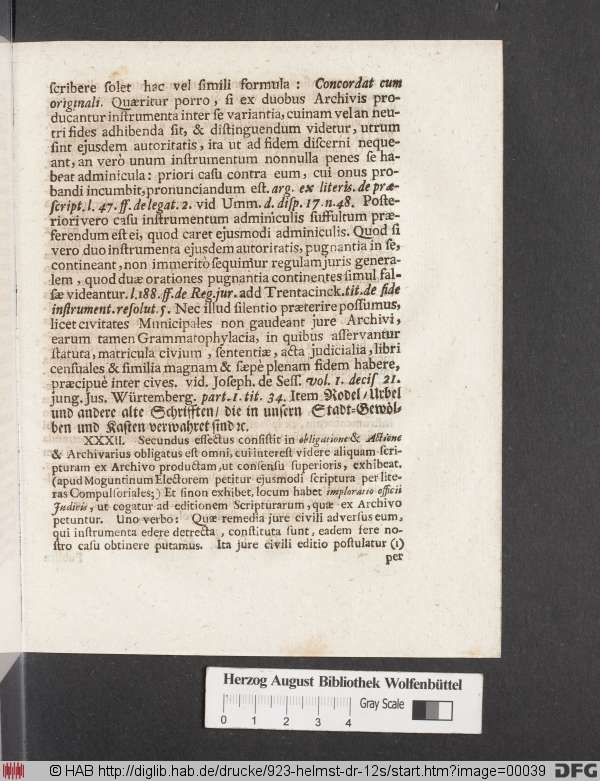 scribere solet hac vel simili formula: Concordat cum
originali. Quæritur porro, si ex duobus Archivis pro-
ducantur instrumenta inter se variantia, cuinam vel an neu-
tri fides adhibenda sit, & distinguendum videtur, utrum
sint ejusdem autoritatis, ita ut ad fidem discerni neque-
ant, an verò unum instrumentum nonnulla penes se ha-
beat adminicula: priori casu contra eum, cui onus pro-
bandi incumbit, pronunciandum est. arg. ex literis. de præ-
script. l. 47. ff. de legat. 2. vid Umm. d. disp. 17. n. 48. Poste-
riori vero casu instrumentum adminiculis suffultum præ-
ferendum est ei, quod caret ejusmodi adminiculis. Quod si
vero duo instrumenta ejusdem autoritatis, pugnantia in se,
contineant, non immeritò sequimur regulam juris genera-
lem, quod duæ orationes pugnantia continentes simul fal-
sæ videantur. l. 188. ff. de Reg. jur. add Trentacinck. tit. de fide
instrument. resolut. 5. Nec illud silentio præterire possumus,
licet civitates Municipales non gaudeant jure Archivi,
earum tamen Grammatophylacia, in quibus asservantur
statuta, matricula civium, sententiæ, acta judicialia, libri
censuales & similia magnam & sæpè plenam fidem habere,
præcipuè inter cives. vid. Joseph. de Sess. vol. 1. decis 21.
jung. Jus. Würtemberg. part. 1. tit. 34. Item Rodel/ Urbel
und andere alte Schrifften/ die in unsern Stadt-Gewöl-
ben und Kasten verwahret sind ꝛc.
XXXII. Secundus effectus consistit in obligatione & Actione
& Archivarius obligatus est omni, cui interest videre aliquam scri-
pturam ex Archivo productam, ut consensu superioris, exhibeat.
(apud Moguntinum Electorem petitur ejusmodi scriptura per lite-
ras Compulsoriales;) Et si non exhibet, locum habet imploratio officii
Judicis, ut cogatur ad editionem Scripturarum, quæ ex Archivo
petuntur. Uno verbo: Quæ remedia jure civili adversus eum,
qui instrumenta edere detrecta, constituta sunt, eadem fere no-
stro casu obtinere putamus. Ita jure civili editio postulatur (1)
per
Herzog August Bibliothek Wolfenbüttel
0 1 2 3 4 Gray Scale
© HAB http://diglib.hab.de/drucke/923-helmst-dr-12s/start.htm?image=00039
DFG